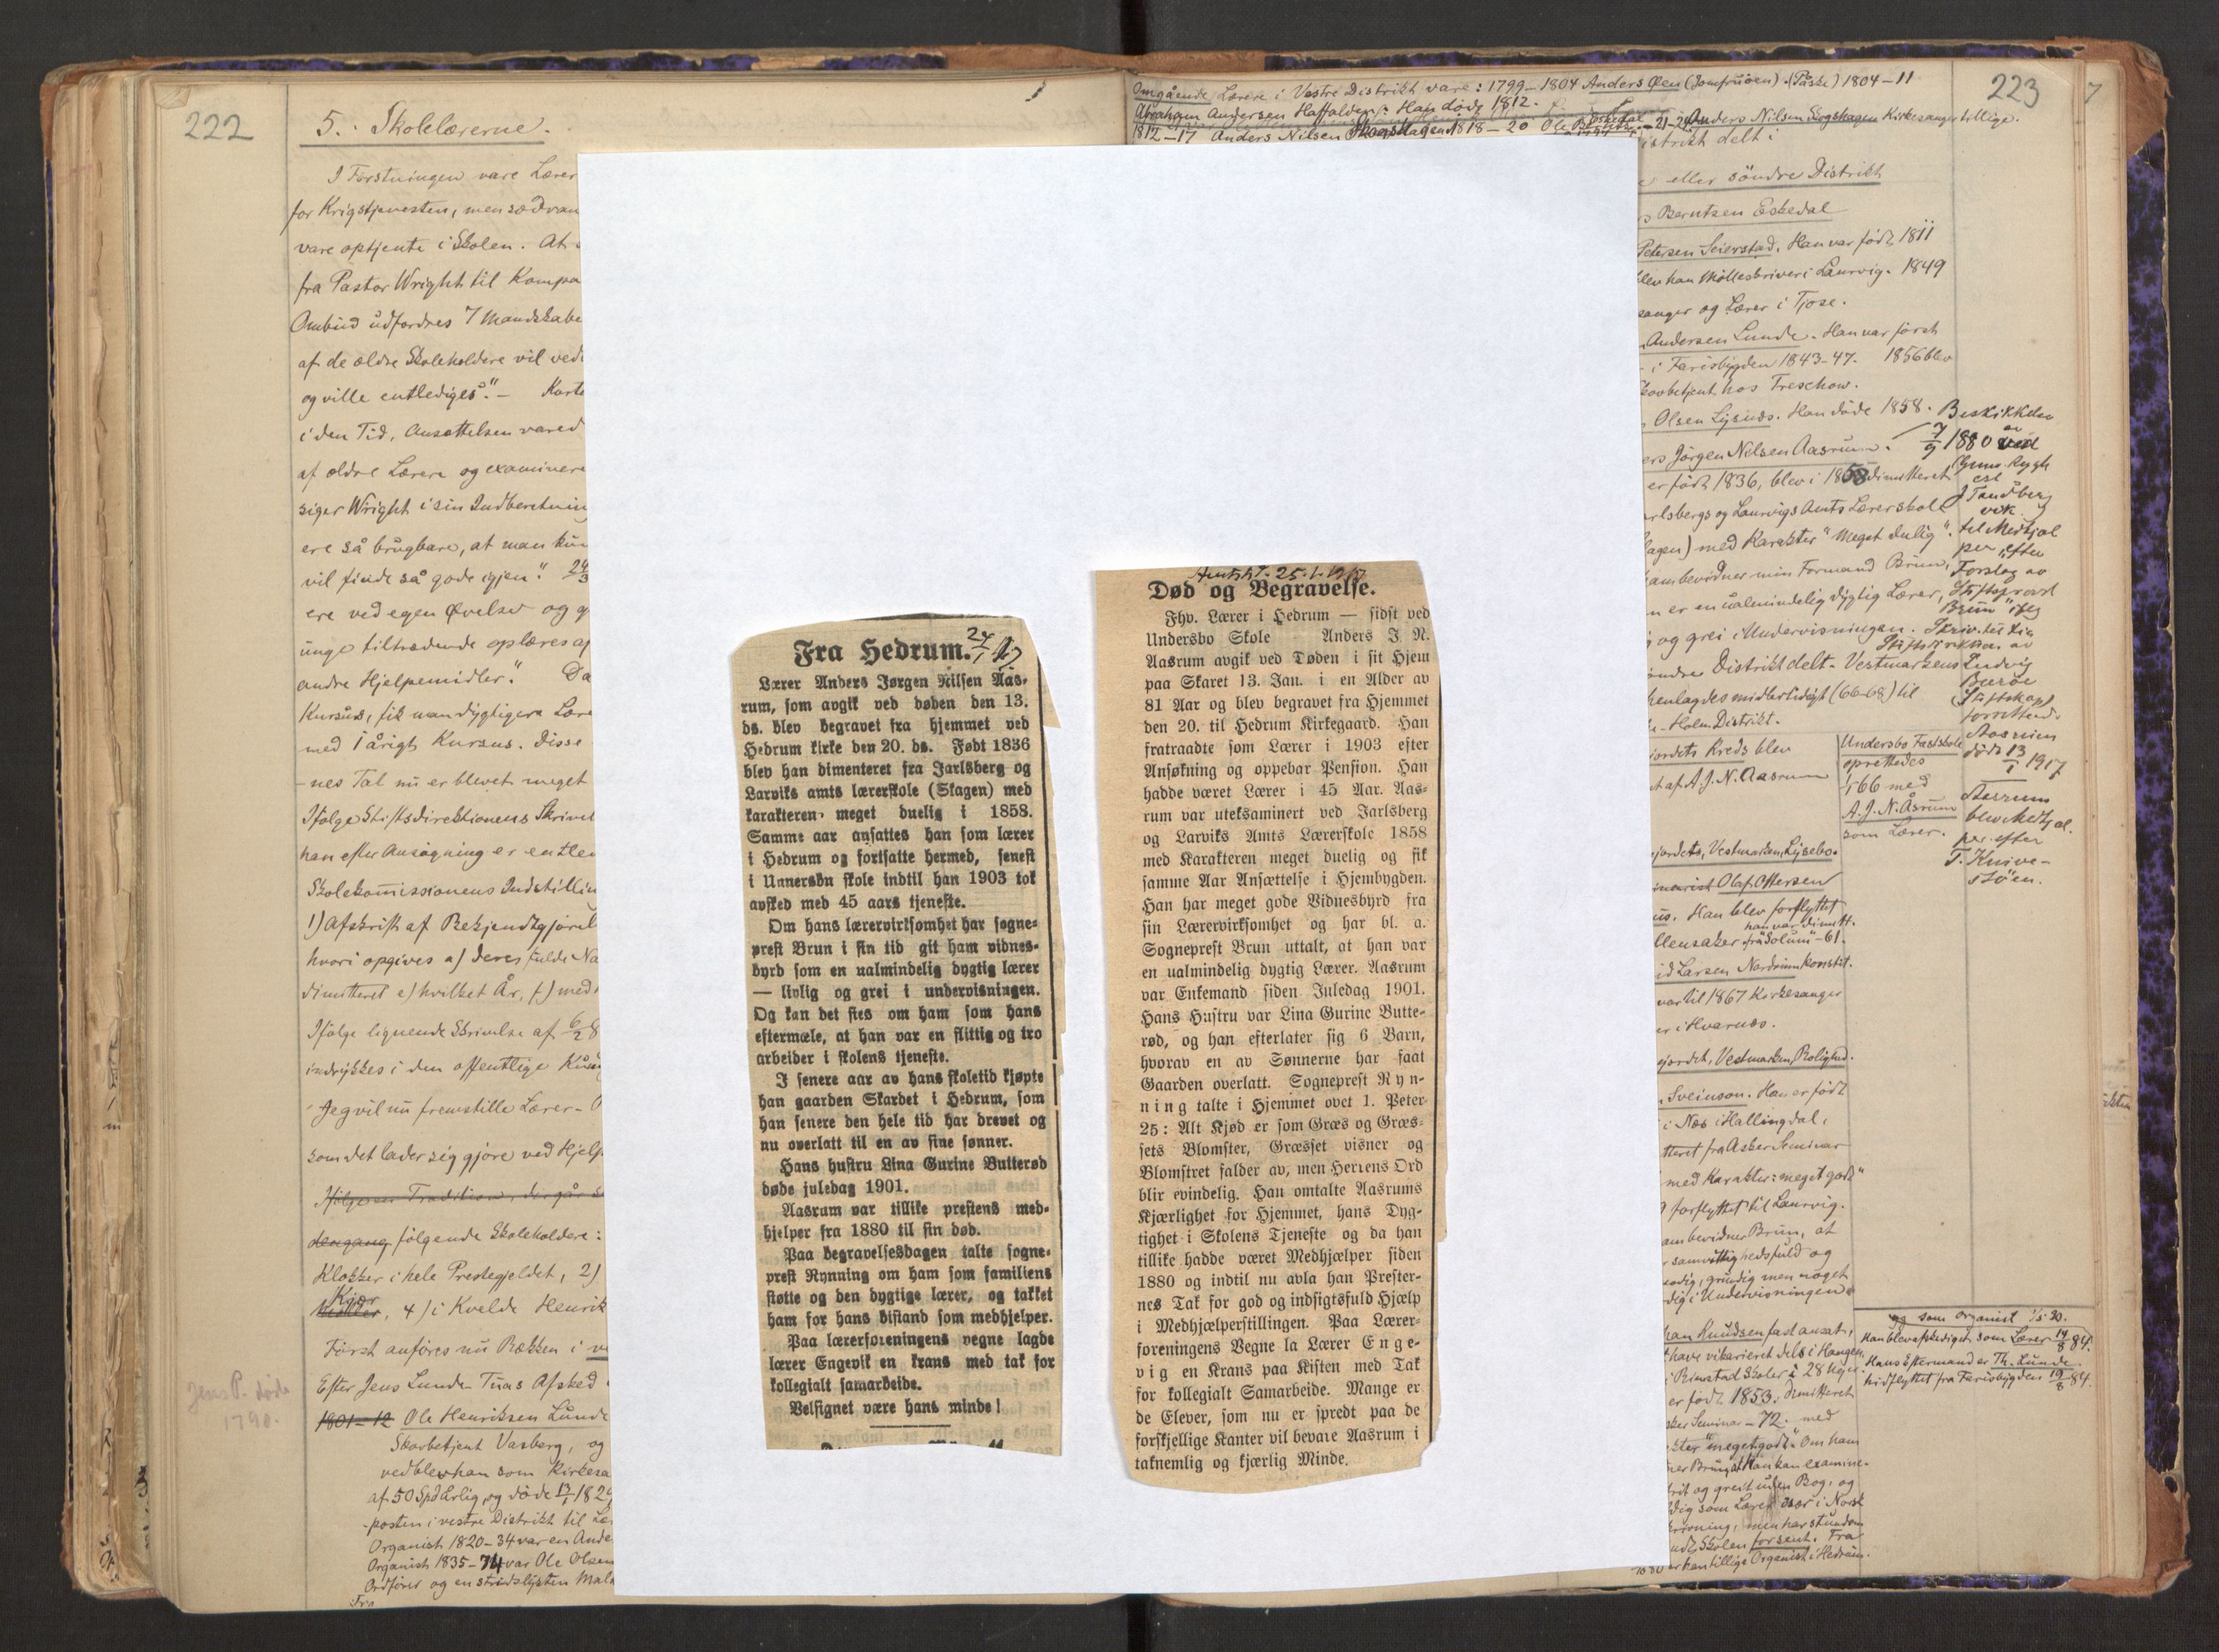 222
5. Skolelærerne.
I Førstningen vare Lærer
for Krigstjenesten, men sædvan
vare optjente i Skolen. At
fra Pastor Wright til Kompa
Ombud udfordres 7 Mandskabe
af de ældre Skoleholdere vil ved
og ville entlediges". — Korte
i den Tid, Ansættelsen vared
af ældre Lærere og examinere
siger Wright i sin Indberetning
ere så brugbare, at man kun
vil finde så gode igjen." 24/3
ere ved egen Øvelse og g
unge tiltrædende oplæres af
andre Hjelpemidler". Da
Kursus, fik man dygtigere Lære
med 1 årigt Kursus. Disse
-nes Tal nu er blevet meget
Ifølge Stiftsdirektionens Skrivel
han efter Ansøgning er entle
Skolekommissionens Indstilling
1) Afskrift af Bekjendtgjørel
hvori opgives a) deres fulde Na
dimitteret e) hvilket År, f) med
Ifølge lignende Skrivelse af 6/2 8
indrykkes i den offentlige Kund
Jeg vil nu fremstille Lærer-
som det lader sig gjøre ved Hjelp
Ifølge en Tradition, der går
dengang følgende Skoleholdere:
Klokker i hele Prestegjeldet, 2)
Kjær
4) i Kvelde Henrik
Først anføres nu Rækken i
Efter Jens Lunde Tuas Afsked
Jens P. døde
1790.
1801-12 Ole Henriksen Lunde
Skovbetjent Vasberg, og
vedblev han som Kirkesa
af 50 Spd årlig, og døde 13/1 182
-posten i vestre Distrikt til Læ
Organist 1820-34 var en Ande
Organist 1835-74 var Ole Olsen
Ordfører og en stridslysten Mal
Fra
Fra Hedrum. 24/1 17
Lærer Anders Jørgen Nilsen Aas-
rum, som avgik ved døden den 13.
ds. blev begravet fra hjemmet ved
Hedrum kirke den 20. ds. Født 1836
blev han dimenteret fra Jarlsberg og
Larviks amts lærerskole (Skagen) med
karakteren meget duelig i 1858.
Samme aar ansattes han som lærer
i Hedrum og fortsatte hermed, senest
i Unnersbn skole indtil han 1903 tok
avsked med 45 aars tjeneste.
Om hans lærervirksomhet har sogne-
prest Brun i sin tid git ham vidnes-
byrd som en ualmindelig dygtig lærer
— livlig og grei i undervisningen.
Og kan det sies om ham som hans
eftermæle, at han var en flittig og tro
arbeider i skolens tjeneste.
I senere aar av hans skoletid kjøpte
han gaarden Skardet i Hedrum, som
han senere den hele tid har drevet og
nu overlatt til en av sine sønner.
Hans hustru Lina Gurine Butterød
døde juledag 1901.
Aasrum var tillike prestens med-
hjelper fra 1880 til sin død.
Paa begravelsesdagen talte sogne-
prest Rynning om ham som familiens
støtte og den dygtige lærer, og takket
ham for hans bistand som medhjelper.
Paa lærerforeningens vegne lagde
lærer Engevik en krans med tak for
kollegialt samarbeide.
Velsignet være hans minde!
Amtst. 25.1.1917
Død og Begravelse.
Fhv. Lærer i Hedrum — sidst ved
Undersbo Skole Anders J. N.
Aasrum avgik ved Døden i sit Hjem
paa Skaret 13. Jan. i en Alder av
81 Aar og blev begravet fra Hjemmet
den 20. til Hedrum Kirkegaard. Han
fratraadte som Lærer i 1903 efter
Ansøkning og oppebar Pension. Han
hadde været Lærer i 45 Aar. Aas-
rum var uteksaminert ved Jarlsberg
og Larviks Amts Lærerskole 1858
med Karakteren meget duelig og fik
samme Aar Ansættelse i Hjembygden.
Han har meget gode Vidnesbyrd fra
sin Lærervirksomhet og har bl. a.
Sogneprest Brun uttalt, at han var
en ualmindelig dygtig Lærer. Aasrum
var Enkemand siden Juledag 1901.
Hans Hustru var Lina Gurine Butte-
rød, og han efterlater sig 6 Barn,
hvorav en av Sønnerne har faat
Gaarden overlatt. Sogneprest Ryn-
ning talte i Hjemmet ovet 1. Peter
25: Alt Kjød er som Græs og Græs-
sets Blomster, Græsset visner og
Blomstret falder av, men Herrens Ord
blir evindelig. Han omtalte Aasrums
Kjærlighet for Hjemmet, hans Dyg-
tighet i Skolens Tjeneste og da han
tillike hadde været Medhjælper siden
1880 og indtil nu avla han Prester-
nes Tak for god og indsigtsfuld Hjælp
i Medhjælperstillingen. Paa Lærer-
foreningens Vegne la Lærer Enge-
vig en Krans paa Kisten med Tak
for kollegialt Samarbeide. Mange er
de Elever, som nu er spredt paa de
forskjellige Kanter vil bevare Aasrum i
taknemlig og kjærlig Minde.
223
Omgående Lærere i Vestre Distrikt vare: 1799-1804 Anders Øen (Jomfruøen). (Påske) 1804-11
Abraham Andersen Haffalden. Han døde 1812.
1812-17 Anders Nilsen Skogshagen 1818-20 Ole -21-24 Anders Nilsen Skogshagen Kirkesanger tillige.
istrikt delt i
eller søndre Distrikt
s Berntsen Eskedal
Petersen Seierstad. Han var født 1811
blev han Mølleskriver i Laurvig. 1849
sanger og Lærer i Tjose.
Andersen Lunde. Han var først
i Farisbygden 1843-47. 1856 blev
Skovbetjent hos Treschow.
Olsen Lysnes. Han døde 1858.
ers Jørgen Nilsen Aasrum.
er født 1836, blev i 1858 dimitteret
rlsbergs og Laurvigs Amts Lærerskole
agen) med Karakter "Meget duelig".
am bevidner min Formand Brun,
n er en ualmindelig dygtig Lærer,
og grei i Undervisningen.
øndre Distrikt delt. Vestmarkens
enlagdes midlertidigt (66-68) til
-Holm Distrikt.
Beskikkelse
7/9 1880 av
Tandberg
vik.
til Medhjæl
per efter
Forslag av
Stiftsprost
Brun ifølg
Skriv. fra
Stiftsdirektion av
Ludvig
Stiftskap
forsettend.
Aasrum
døde 13/1 1917
Aasrum
blev Medhjæl.
per efter
T. Knive-
støen.
jordets Kreds blev
t af A.J.N. Aasrum
Undersbo Fastskole
oprettedes
1/1 66 med
A.J.N. Åsrum
som Lærer.
jordets, Vestmarken, Lysebo.
inarist Olaf Ottersen
us. Han blev forflyttet
han var dimitt.
llensaker fra "Solum" -61.
id Larsen Nordrum konstit.
var til 1867 Kirkesanger
er i Hvarnæs.
ejordet, Vestmarken, Rolighed.
Sveinson. Han er født
i Næs i Hallingdal,
tteret fra Asker Seminar
med Karakter: meget godt"
forflyttet til Laurvig.
am bevidner Brun, at
samvittighedsfuld og
odig, grundig men noget
dig i Undervisningen.
an Knudsen fast ansat,
have vikarieret dels i Haugen,
i Rimstad Skoler i 28 Uger.
er født 1853. Dimitteret
sker Seminar -72. med
kter "meget godt." Om ham
ner Brun, at Han kan examine-
frit og greit uden Bog, og
dig som Lærer især i Norsk
krivning, men har stundom
udt Skolen forsent. Fra
1880 er han tillige Organist i Hedrum.
og som organist 1/5 30.
Han blev afskediget som Lærer 19/8 84.
Hans Eftermand er Th. Lunde
hidflyttet fra Farisbygden 19/8 84.